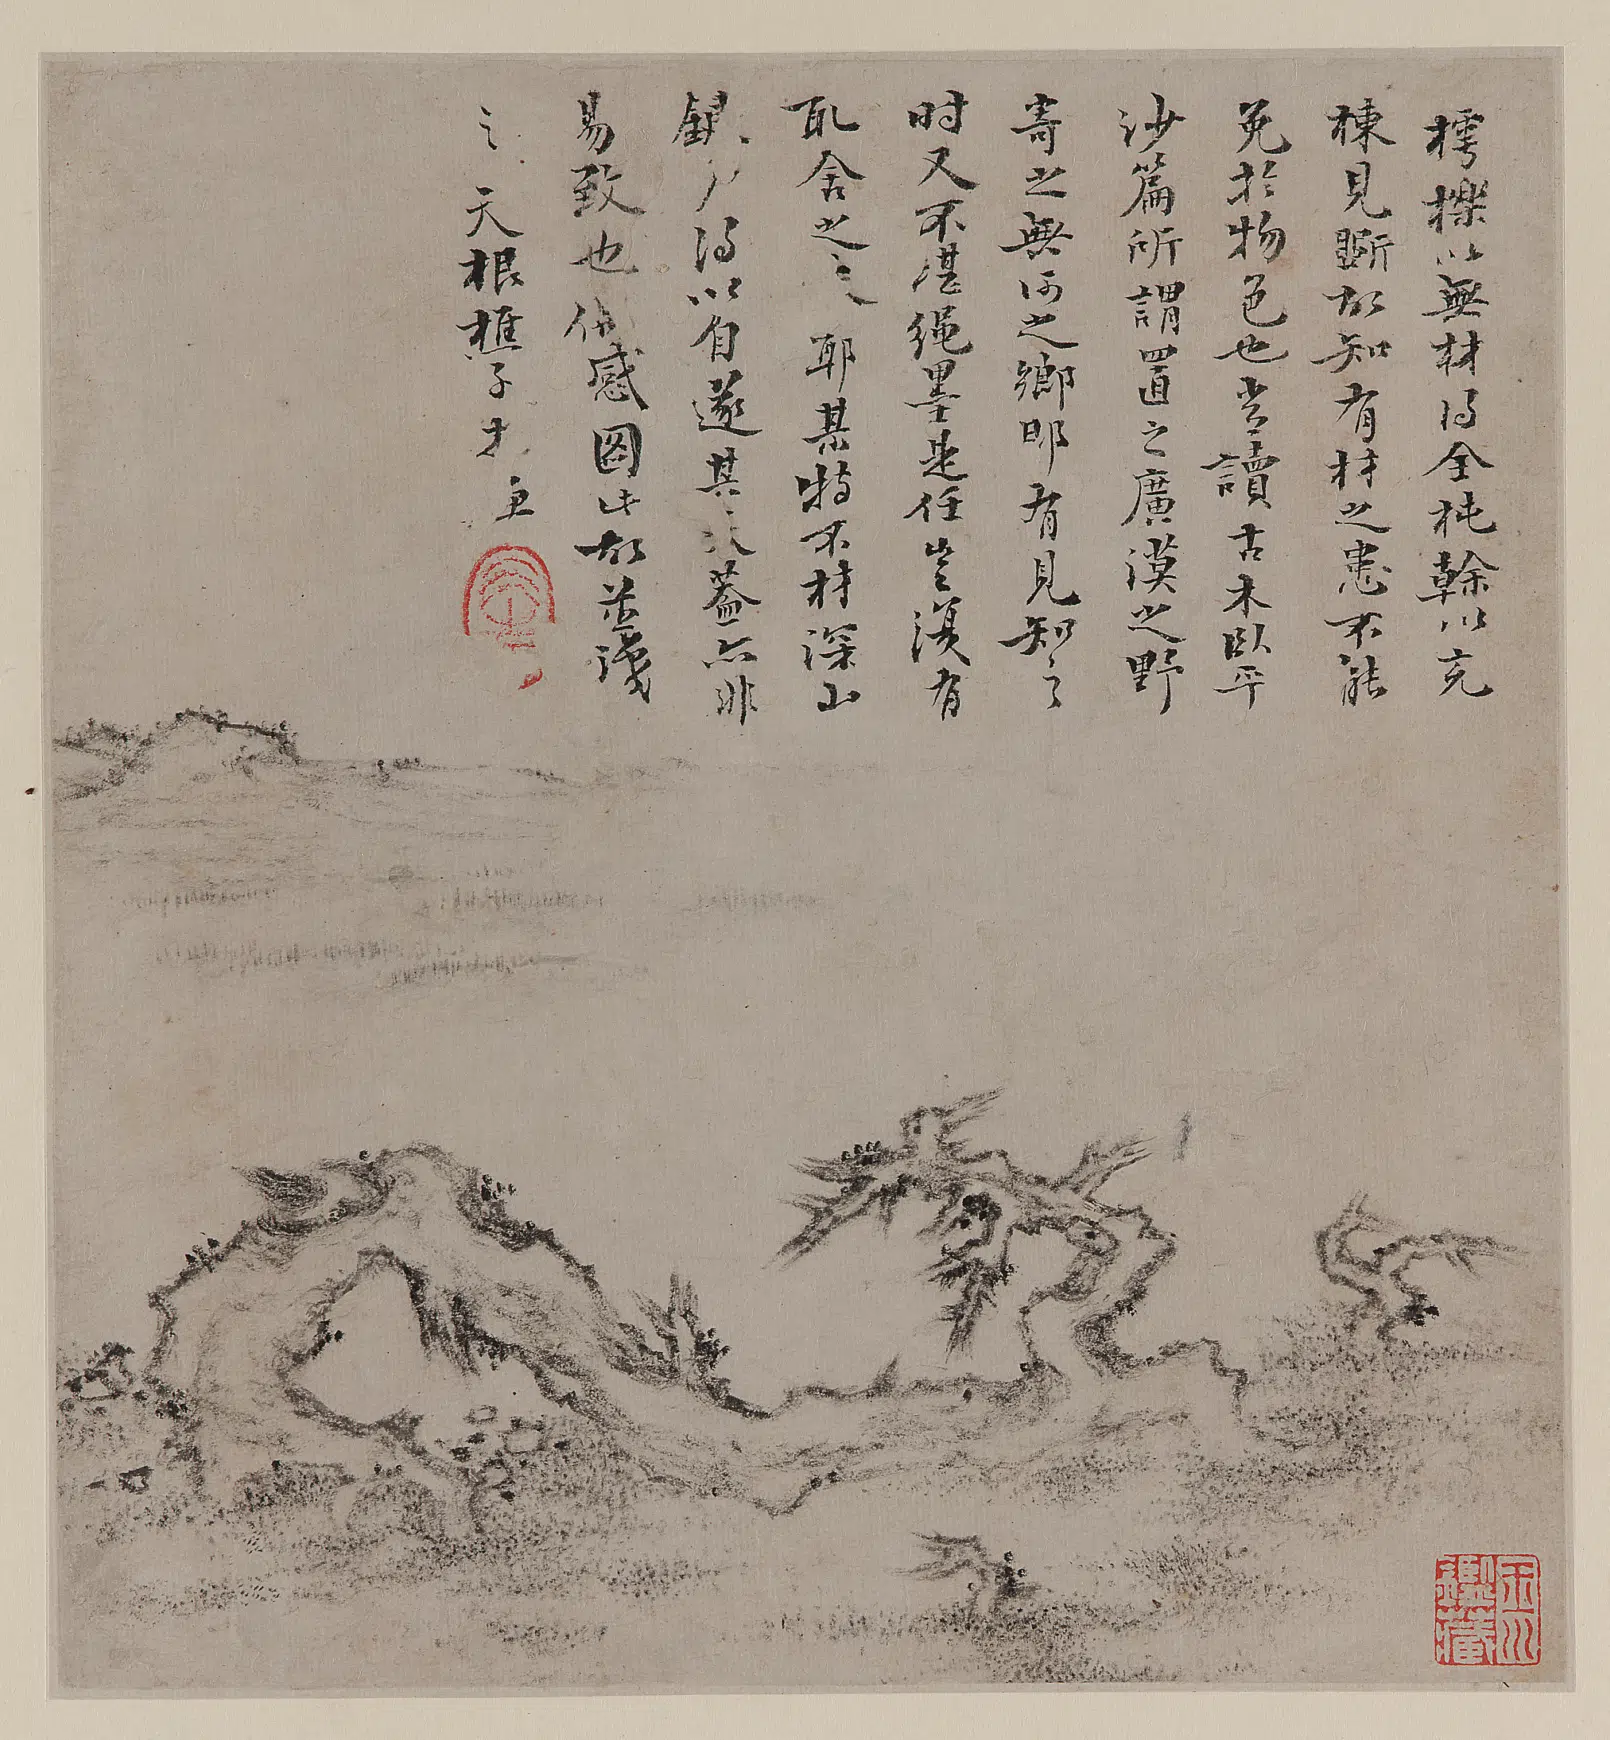 樗櫟以無材得全杶榦以充
棟見斵故知有材之患不能
免於物色也嘗讀古木臥平
沙篇所謂置之廣漠之野
寄之無何之鄉耶有見知之
时又不堪绳墨是任豈復有
取舍之 耶某特不材深山
戶得以自遂其 蓋亦非
易致也 感圖此故並識
之 天根樵子
鑑藏